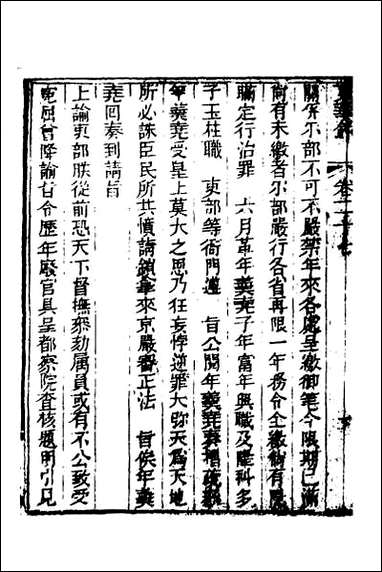 關係爾部不可不嚴禁年來各處呈繳御筆今限期已滿
尙有未繳者爾部嚴行各省再限一年務令全繳倘有隱
瞞定行治罪 六月革年羹堯子年富年興職及隆科多
子玉柱職 吏部等衙門遵 旨公閱年羹堯奏摺疏叅
年羹堯受皇上莫大之恩乃狂妄悖逆罪大弥天爲天地
所必誅臣民所共憤請鎖拿來京嚴審正法 旨俟年羹
堯回奏到請旨
上諭吏部朕從前恐天下督撫叅劾属員或有不公致受
寃屈曾降諭旨令歷年廢官具呈都察院查核題明引見